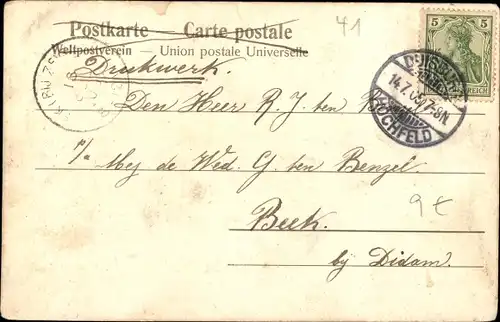 41
Postkarte — Carte postale
Weltpostverein — Union postale Universelle
Druckwerk.
5 5
REICH
14.7.05. 7-8N
HOCHFELD
Den Heer R J ten
p/a Mej de Wed. G. ten Benzel.
9 €
Beek.
by Didam.